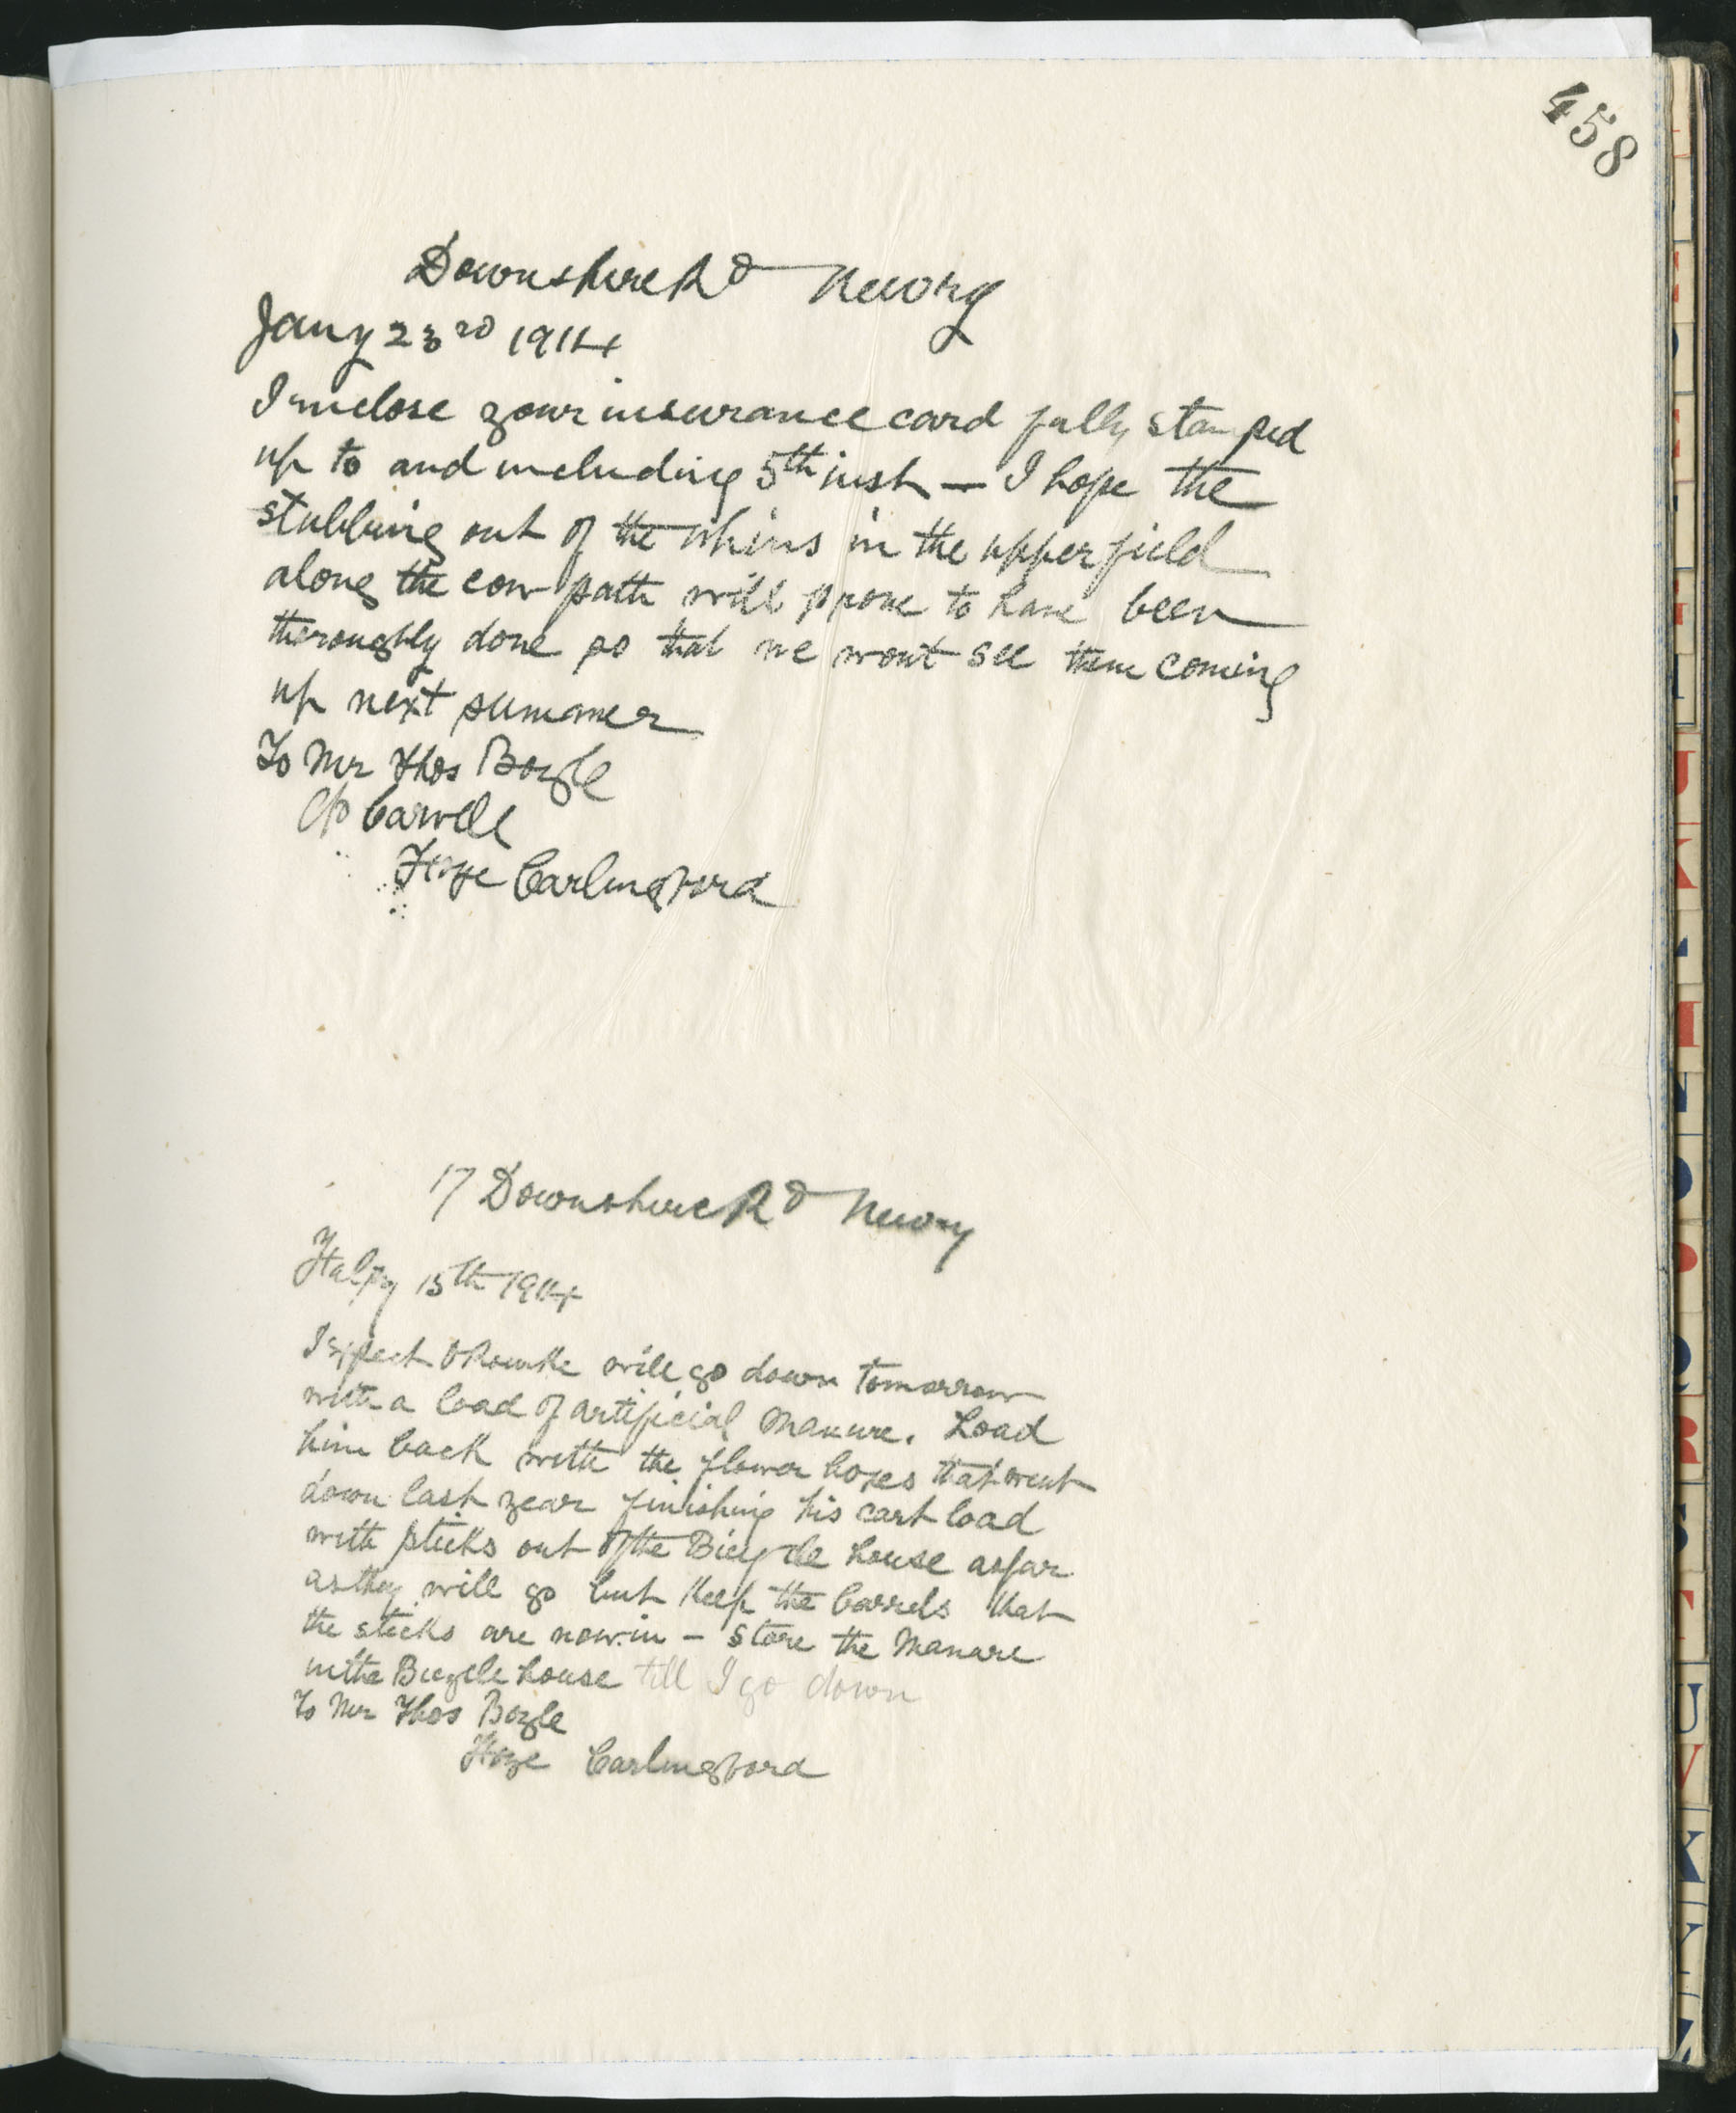 458
Downshire Rd Newry
Jany 23rd 1914
I enclose your insurance card fully stamped
up to and including 5th inst — I hope the
stubbing out of the whins in the upper field
along the cow path will prove to have been
thoroughly done so that we wont see them coming
up next summer
To Mr Thos Boyle
c/o Carvill
Carlingford
17 Downshire Rd Newry
15th 1914
I expect O'Rourke will go down tomorrow
with a load of artificial manure. Load
him back with the flower boxes that went
down last year finishing his cart load
with sticks out of the Bicycle house as far
as they will go but keep the barrels that
the sticks are now in – store the manure
in the Bicycle house till I go down
To Mr Thos Boyle
Carlingford